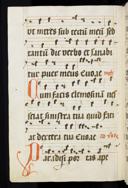 ut intres sub tectũ meũ sed
tantũ dic verbo et sanabi
tur puer meus Euouae
Cum facis elemosinã nes
ciat sinistra tua quid faci
at dextera tua Euouae
Paradisi por tas ape